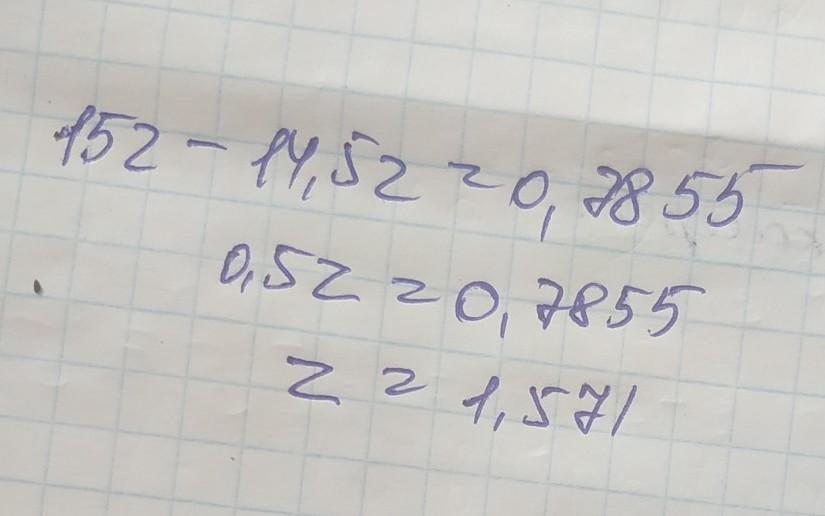 15z - 14,5z = 0,7855
0,5z = 0,7855
z = 1,571